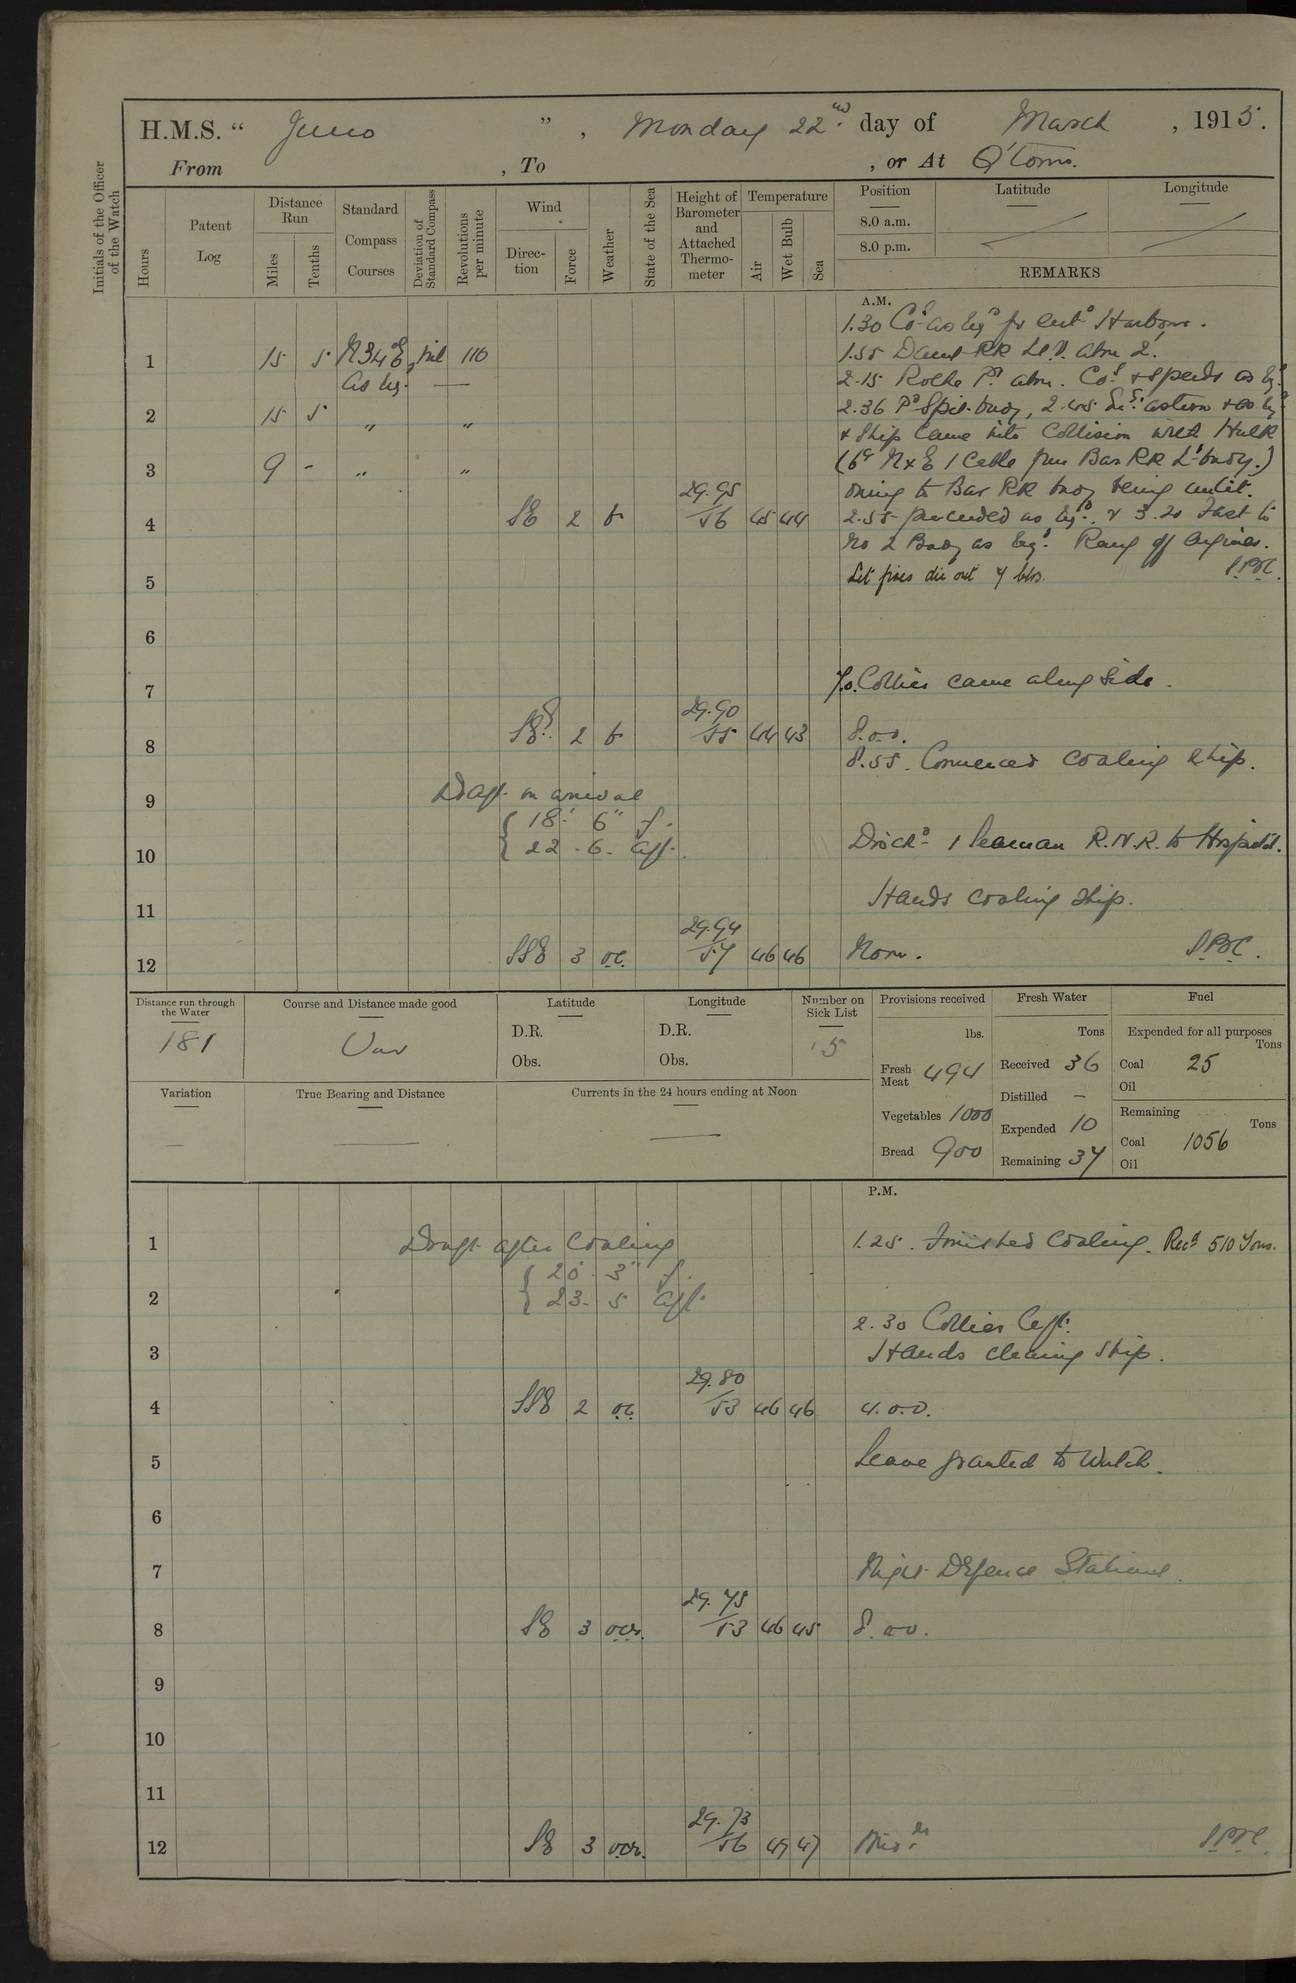 H.M.S. “ Juno ” , Monday 22nd day of March , 1915.
From , To , or At Q'town.
Initials of the Officer of the Watch
Hours
Patent Log
Distance Run
Miles
Tenths
Standard Compass Courses
Deviation of Standard Compass
Revolutions per minute
Wind
Direction
Force
Weather
State of the Sea
Height of Barometer and Attached Thermometer
Temperature
Air
Wet Bulb
Sea
Position
Latitude
Longitude
8.0 a.m.
8.0 p.m.
REMARKS
A.M.
1.30 Cos as reqd for entg Harbour.
1 15 5 N34E nil 116 1.55 Daunt RK Lt. V. abm 2'.
as req. — 2.15 Roche Pt abm. Cos & speeds as req.
2 15 5 „ „ 2.36 Pd Spit buoy, 2.45 astern & as req
& Ship came into Collision with Hulk
3 9 - „ „ (bg N x E 1 Cable from Bar RK Lt buoy.)
29.95 owing to Bar RK buoy being unlit.
4 SE 2 b 56 45 44 2.55 proceeded as reqd. & 3.20 Fast to
No 2 Buoy as reqd. Rang off Engines.
5 Let fires die out 7 blrs.
6
7 7.0. Collier came along side.
29.90
8 SE 2 b 55 44 43 8.00.
8.55. Commenced coaling ship.
9 Draft on arrival
{ 18' 6" f.
10 { 22. 6. aft. Dischd 1 Seaman R.N.R. to Hospital.
11 Hands coaling ship.
29.94
12 SSE 3 oc. 57 46 46 Noon.
Distance run through the Water
181
Course and Distance made good
Var
Latitude
D.R.
Obs.
Longitude
D.R.
Obs.
Number on Sick List
5
Provisions received
lbs.
Fresh Meat 494
Vegetables 1000
Bread 900
Fresh Water
Tons
Received 36
Distilled –
Expended 10
Remaining 37
Fuel
Expended for all purposes
Tons
Coal 25
Oil
Remaining
Tons
Coal 1056
Oil
Variation
—
True Bearing and Distance
—
Currents in the 24 hours ending at Noon
—
P.M.
1 Draft after Coaling 1.25. Finished Coaling. Recd 510 Tons.
{ 20. 3" f.
2 { 23. 5 aft.
2.30 Collier left.
3 Hands cleaning ship.
29.80
4 SSE 2 oc. 53 46 46 4.00.
5 Leave granted to Watch.
6
7 Night Defence Stations.
29.75
8 SE 3 ocr. 53 46 45 8.00.
9
10
11
29.73
12 SE 3 ocr. 56 49 47 Midt.